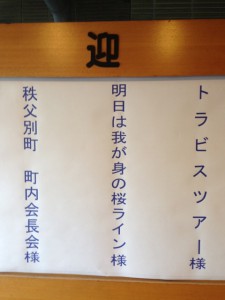 迎
トラビスツアー様
明日は我が身の桜ライン様
秩父別町　町内会長会様